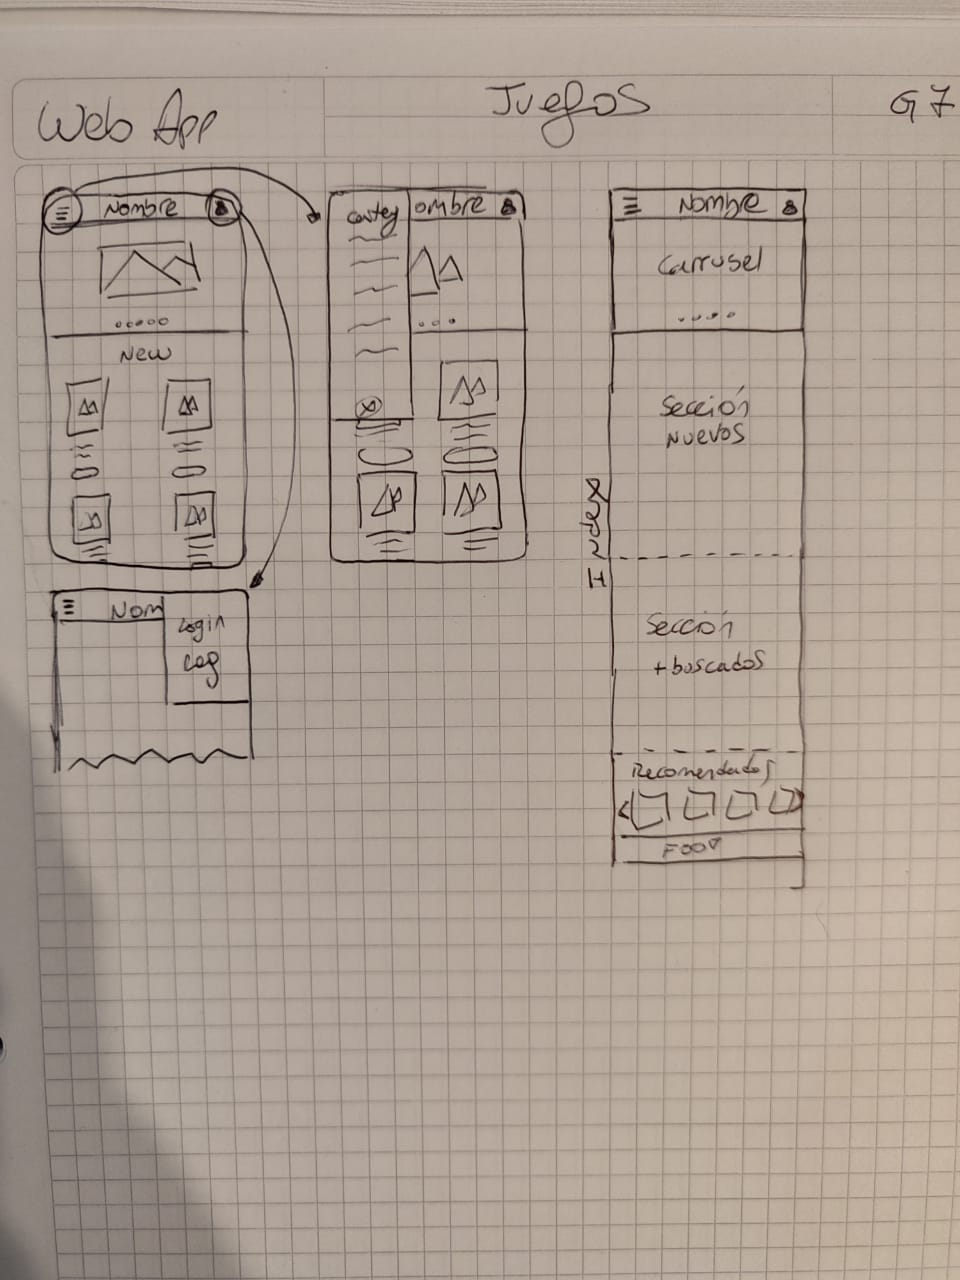 Web App
Juegos
G7
Nombre
New
Categ
ombre
Nom
Login
Nombre
Carrusel
Sección
Nuevos
Index
Sección
+ buscados
Recomendados